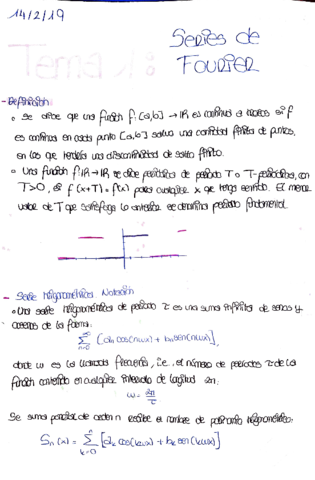 14/2/19
Series de
FOURIER
Tema 1:
- Definición:
• Se dice que una función f: [a,b] → ℝ es continua a trozos si f
es continua en cada punto [a,b] salvo una cantidad finita de puntos,
en los que tendría una discontinuidad de salto finito.
• Una función f: ℝ → ℝ se dice periódica de periodo T o T-periódica, con
T>0, si f(x+T) = f(x) para cualquier x que tenga sentido. El menor
valor de T que satisfaga lo anterior se denomina periodo fundamental.
- Serie trigonométrica. Notación
• Una serie trigonométrica de periodo τ es una suma infinita de senos y
cosenos de la forma:
∞
∑ [an cos(nωx) + bn sen(nωx)],
n=0
donde ω es la llamada frecuencia, i.e., el número de periodos τ de la
función contenido en cualquier intervalo de longitud 2π:
ω = 2π/τ
Se suma parcial de orden n recibe el nombre de polinomio trigonométrico:
Sn(x) = n∑k=0 [ak cos(kωx) + bk sen(kωx)]